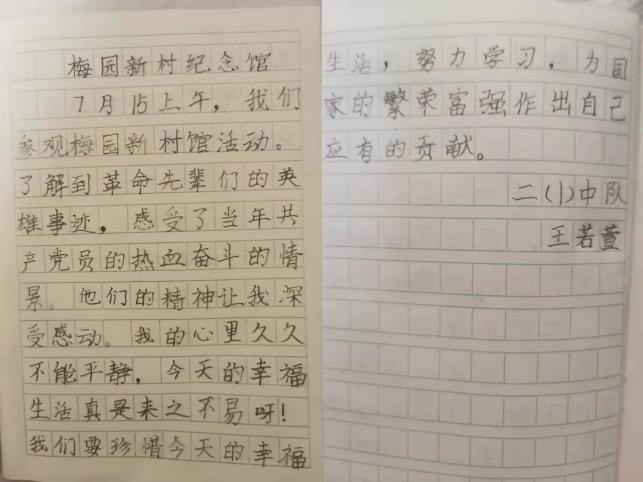 梅园新村纪念馆
7月15上午，我们
参观梅园新村馆活动。
了解到革命先辈们的英
雄事迹，感受了当年共
产党员的热血奋斗的情
景。他们的精神让我深
受感动。我的心里久久
不能平静，今天的幸福
生活真是来之不易呀！
我们要珍惜今天的幸福
生活，努力学习，为国
家的繁荣富强作出自己
应有的贡献。
二(1)中队
王若萱